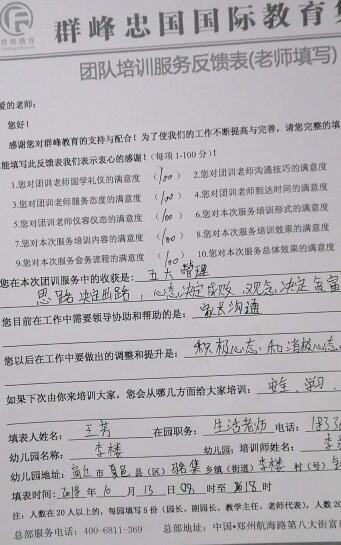 群峰教育
群峰忠国国际教育集
团队培训服务反馈表(老师填写)
爱的老师:
您好!
感谢您对群峰教育的支持与配合!为了使我们的工作不断提高与完善,请您完整的填
能填写此反馈表我们表示衷心的感谢!(每项1-100分)!
1.您对团训老师国学礼仪的满意度 (100) 2.您对团训老师沟通技巧的满意度
3.您对团训老师服务态度的满意度 (100) 4.您对团训老师到达时间的满意度
5.您对团训老师仪容仪态的满意度 (100) 6.您对本次服务培训形式的满意度
7.您对本次服务培训内容的满意度 (100) 8.您对本次服务培训效果的满意度
9.您对本次服务会务流程的满意度 (100) 10.您对本次服务总体效果的满意度
您在本次团训服务中的收获是: 五大管理
思路决定出路,心态决定成败,观念决定贫富
您目前在工作中需要领导协助和帮助的是: 家长沟通
您以后在工作中要做出的调整和提升是: 积极心态,和消极心态
如果下次由你来培训大家,您会从哪几方面给大家培训: 安全
填表人姓名: 王芳 在园职务: 生活老师 电话: 183
幼儿园名称: 李楼 幼儿园: 培训师姓名: 李
幼儿园地址: 商丘市夏邑县(区)骆集乡镇(街道)李楼村(号)
填表时间: 2018年10月13日08时至18时
注: 人数在20人以上的,每园填写5份(园长、副园长、教学主任、老师代表),人数20
总部服务电话: 400-6811-369 总部地址: 中国·郑州航海路第八大街富